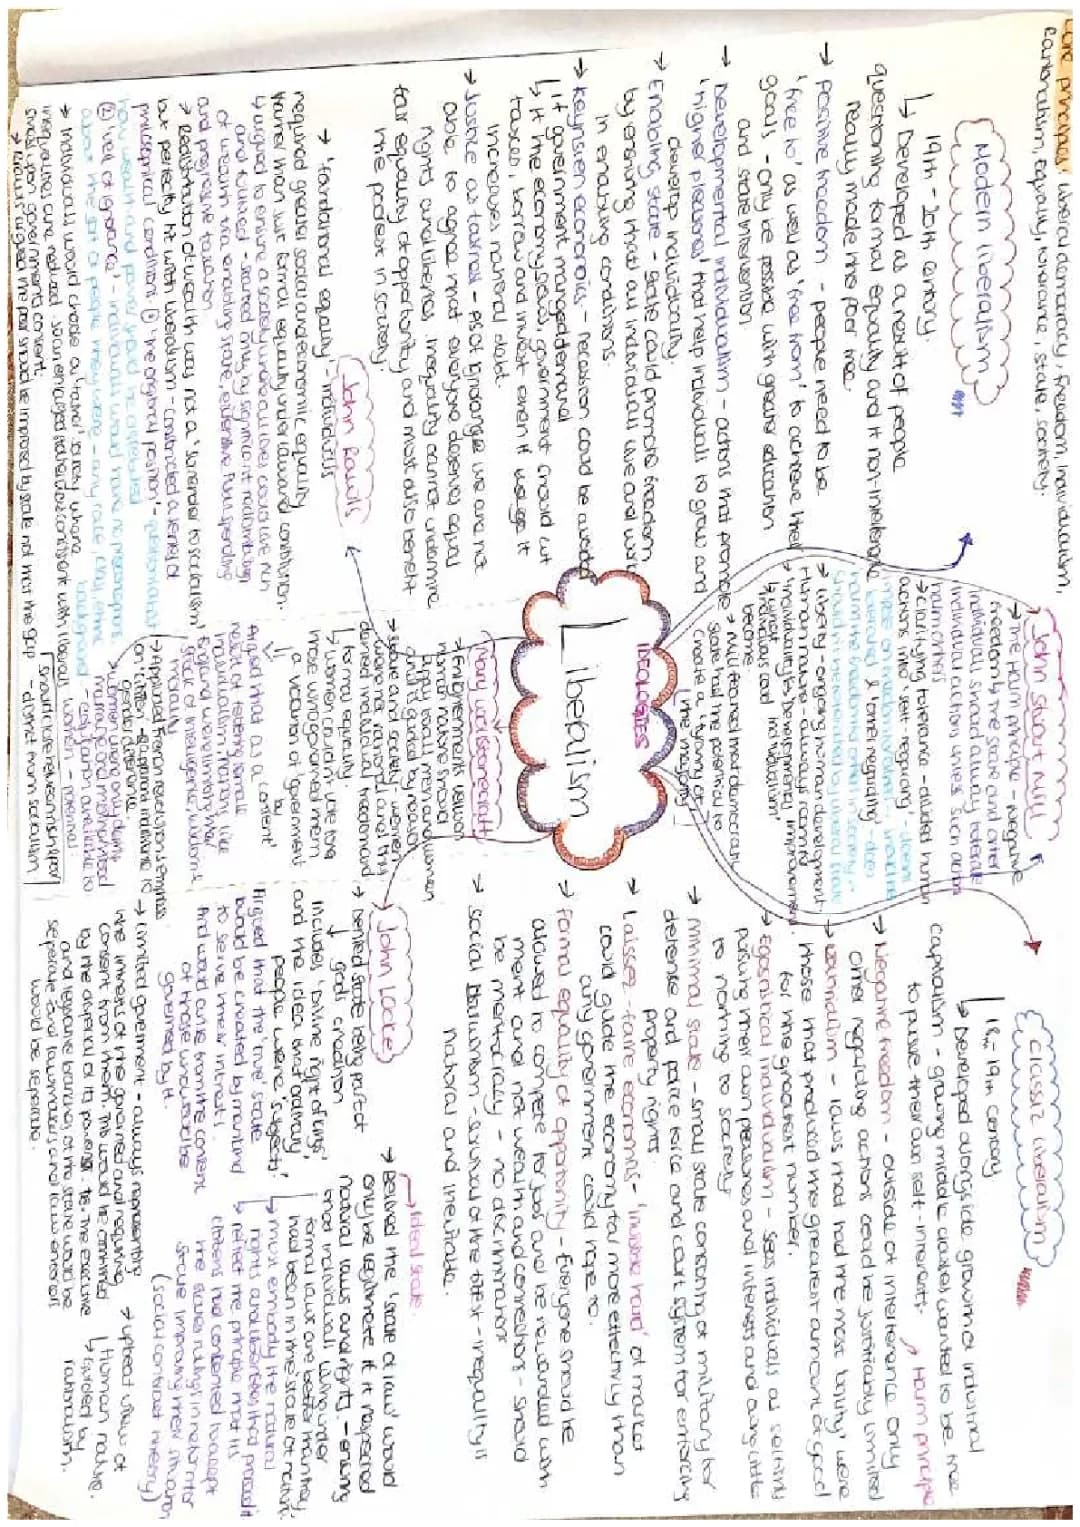 Core principles: liberal democracy, freedom, individualism,
Rationalism, equality, tolerance, state, society.
Modern liberalism
19th - 20th century.
↳ Developed as a result of people
questioning formal equality and if non-interference
really made the poor free.
→ Positive freedom - people need to be
'free to' as well as 'free from' to achieve their
goals - only be possible with greater education
and state intervention
→ Developmental individualism - actions that promote
'higher pleasures' that help individuals to grow and
develop individually.
→ Enabling state - state could promote freedom
by ensuring that all individuals live and work
in enabling conditions.
→ Keynesian economics - recession could be avoided
if government managed demand
↳ If the economy slows, government should cut
taxes, borrow and invest even if
increases national debt.
→ Justice as fairness - of ignorance we are not
able to agree that everyone deserves equal
rights and liberties. Inequality cannot undermine
fair equality of opportunity and must also benefit
the poorest in society.
John Rawls
→ 'foundational equality' - individuals
required greater social and economic equality
than just formal equality under law and constitution.
↳ argued to ensure a society where all lives could live rich
and fulfilled - secured only by significant redistribution
of wealth via enabling state, extensive public spending
and progressive taxation
→ Redistribution of wealth was not a 'surrender to socialism'
but perfectly fit with liberalism - constructed a series of
philosophical conditions ① the original position' -
how wealth and power should be distributed
② 'veil of ignorance' - individuals would have no preconceptions
about the sort of people they were - any race, class, ethnic
background
→ Individuals would choose a 'fairer' society where
inequalities are reduced - state enlarged therefore consistent with liberal
stress upon government by consent.
→ Rawls argued the poor should be improved by state not that the gap
should be - distinct from socialism
John Stuart Mill
→ The Harm principle - negative
freedom - the state and other
individuals should always tolerate
individual actions, unless such action
harm others
→ Clarifying tolerance - divided human
actions into 'self-regarding' -
'other regarding' - does
harm the freedoms of others in society -
should not be tolerated by liberal state
→ liberty - ongoing human development.
Human nature - always room for
improvement.
→ 'Individuality' = Development
individuals could
become.
'Individualism'
→ Mill feared that democratic
state had the potential to
create a 'tyranny of
the majority'
Liberalism
IDEOLOGIES
Mary Wollstonecraft
→ Enlightenment's view on
human nature should
apply to all men and women
and guided by reason
→ state and society
women not rational and thus
denied individual freedom and
formal equality.
↳ women couldn't vote for
those who governed them
- a violation of 'government
by
consent'
Argued that as a
result of restricting female
individualism, nations like
England were limiting their
stock of intelligence, wisdom and
morality
→ Applauded French revolution's emphasis
on 'citizen' -
gender difference
→ women alone only during
marriage and motherhood
- education available to
women - potential
Classic liberalism
18th-19th century
↳ Developed alongside growth of industrial
capitalism - growing middle classes wanted to be free
to pursue their own self-interests.
Harm principle
→ Negative freedom - outside of interference. Only
other regarding actions could be justifiably limited
→ Utilitarianism - laws that had the most 'utility' were
those that produced the greatest amount of good
for the greatest number.
→ Egoistical individualism - sees individuals as selfishly
pursuing their own pleasures and interests and owe little
to nothing to society
→ Minimal state - small state consisting of military for
defense and police force and court system for enforcing
property rights.
→ Laissez-faire economics - 'invisible hand' of market
could guide the economy far more effectively than
any government could hope to.
→ Formal equality of opportunity - Everyone should be
allowed to compete for jobs and be rewarded with
merit and not wealth and connections - should
be a meritocracy - no discrimination
→ Social Darwinism - survival of the fittest - inequality is
natural and inevitable.
John Locke
→ Denied state being part of
↳ god's creation
includes 'divine right of kings'
and the idea that ordinary
people were 'subjects'
Argued that the 'true' state
would be created by mankind
to serve their interest.
And would arise from the consent
of those who would be
governed by it.
→ Limited government - always representing
the interests of the governed and requiring
consent from them. This would be confirmed
by the dispersal of its powers - so the executive
and legislative branches of the state would be
separate and lawmakers and law enforcers
would be separate.
→ Ideal state:
→ Believed the 'state of law' would
only be legitimate if it respected
natural laws and rights - ensuring
that individuals living under
formal laws are better than they
had been in the state of nature
↳ must embody the natural
rights and liberties that precede it
↳ reflect the principle that its
citizens have consented to accept
the states rulings in return for
state improving their situation
(social contract theory)
→ upbeat view of
Human nature.
↳ guided by
rationalism.